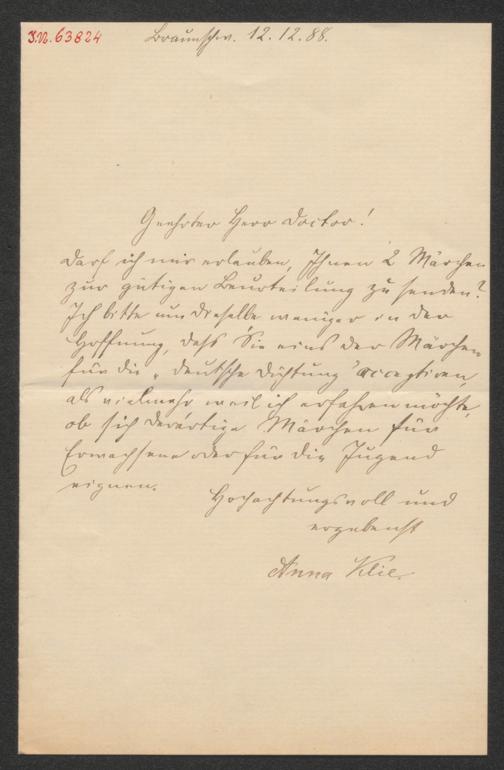 J.N. 63824
Braunschw. 12.12.88.
Geehrter Herr Doctor!
Darf ich mir erlauben, Ihnen 2 Märchen
zur gütigen Beurteilung zu senden?
Ich bitte um dieselbe weniger in der
Hoffnung, daß Sie eins der Märchen
für die „Deutsche Dichtung" acceptiren,
als vielmehr weil ich erfahren möchte,
ob sich derartige Märchen für
Erwachsene oder für die Jugend
eignen.
Hochachtungsvoll und
ergebenst
Anna Klie.